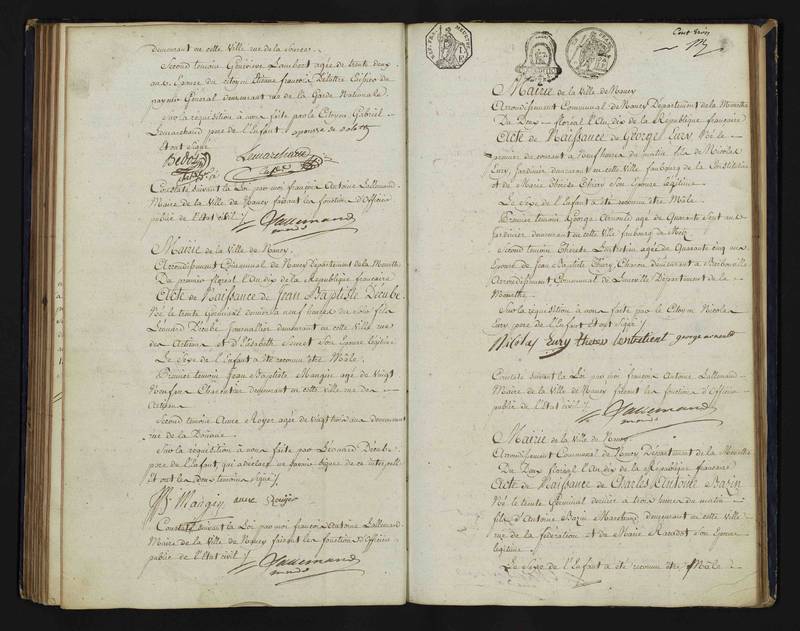 demeurant en cette Ville rue de la Source.
Second temoin Geneviève Lambert agée de trente deux
ans Epouse du citoyen Etienne françois Delettre Caissier du
payeur Général demeurant rue de la Garde Nationale.
Sur la réquisition à nous faite par le Citoyen Gabriel
Lemarchand pere de l'Enfant
et ont signé
Lemarchand
Constaté suivant la Loi par moi françois Antoine Lallemand
Maire de la Ville de Nancy faisant les fonction d'Officier
public de l'Etat civil ./.
Lallemand
Mairie de la Ville de Nancy.
Arrondissement Communal de Nancy Département de la Meurthe
Du premier floréal l'An dix de la République française
Acte de Naissance de Jean Baptiste Décube
Né le trente Germinal dernier à neuf heures du soir fils
Léonard Décube Journallier demeurant en cette Ville rue
des Artisans et d'Elisabeth son Epouse légitime
Le Sexe de l'Enfant a été reconnu être Mâle.
Premier temoin Jean Baptiste Mangin agé de Vingt
Neuf ans Charpentier demeurant en cette Ville rue des
Artisans
Second temoin Anne Royer agée de Vingt trois ans demeurant
rue de la Douane
Sur la réquisition à nous faite par Léonard Décube
pere de l'Enfant, qui a déclaré ne savoir signer de ce interpellé
Et ont les deux temoins signé ./.
Mangin anne
Constaté suivant la Loi par moi françois Antoine Lallemand
Maire de la Ville de Nancy faisant les fonction d'Officier
public de l'Etat civil ./.
Lallemand
Cent trois
Mairie de la Ville de Nancy
Arrondissement Communal de Nancy Département de la Meurthe
Du Deux floréal l'An dix de la République française
Acte de Naissance de George Eury Né le
premier du courant à Neuf heures du matin fils de Nicolas
Eury Jardinier demeurant en cette Ville faubourg de la Constitution
et de Marie Thérèse Thiry Son Epouse légitime
Le Sexe de l'Enfant a été reconnu être Mâle
Premier temoin George Arnould agé de Quarante Sept ans
Jardinier demeurant en cette Ville faubourg de Metz
Second temoin Therese Lentretien agée de Quarante cinq ans
Epouse de Jean Baptiste Thiry Charon demeurant à
Arrondissement Communal de Luneville Département de la
Meurthe
Sur la réquisition à nous faite par le Citoyen Nicolas
Eury pere de l'Enfant et ont signé ./.
Nicolas Eury theres lentretient george arnould
Constaté suivant la Loi par moi françois Antoine Lallemand
Maire de la Ville de Nancy faisant les fonction d'Officier
public de l'Etat civil ./.
Lallemand
Mairie de la Ville de Nancy
Arrondissement Communal de Nancy Département de la Meurthe
Du Deux floréal l'An dix de la République française
Acte de Naissance de Charles Antoine Bazin
Né le trente Germinal dernier à trois heures du matin
fils d'Antoine Bazin Marchand demeurant en cette Ville
rue de la fédération et de Marie Son Epouse
légitime
Le Sexe de l'Enfant a été reconnu être Mâle